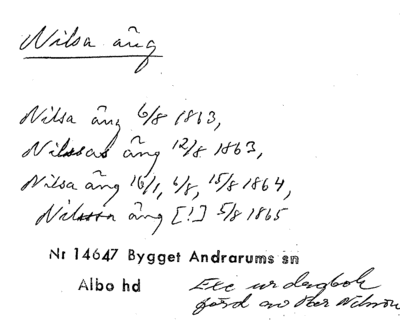 Nilsa äng
Nilsa äng 6/8 1863,
Nilssas äng 12/8 1863,
Nilsa äng 16/1, 6/8, 15/8 1864,
Nilssa äng [!] 5/8 1865
Nr 14647 Bygget Andrarums sn
Albo hd
Exc ur dagbok
förd av Per Nilsson